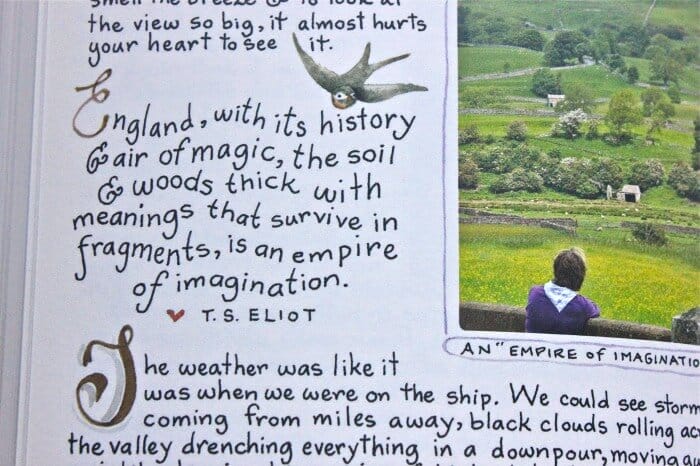 smell the breeze & to look at
the view so big, it almost hurts
your heart to see it.
England, with its history
& air of magic, the soil
& woods thick with
meanings that survive in
fragments, is an empire
of imagination.
♥ T.S. ELIOT
AN "EMPIRE OF IMAGINATIO
The weather was like it
was when we were on the ship. We could see storm
coming from miles away, black clouds rolling ac
the valley drenching everything in a downpour, moving au